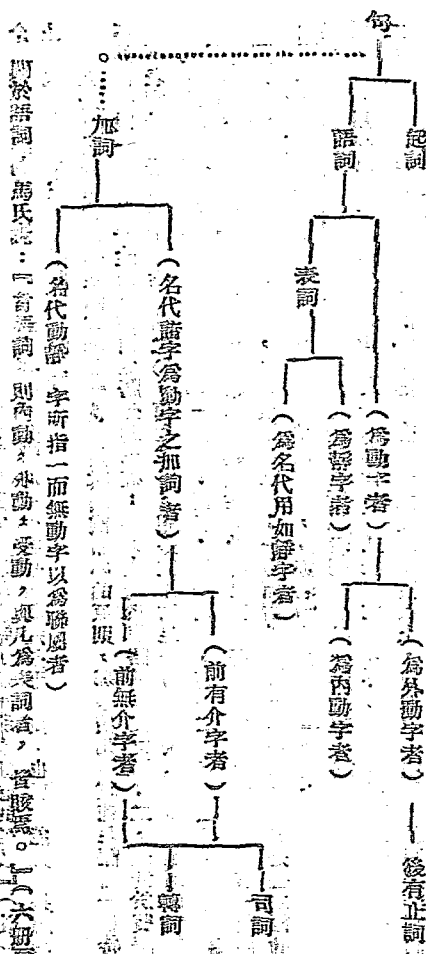 句
起詞
語詞
(為動字者)
(為外動字者)
後有止詞
(為內動字者)
表詞
(為靜字者)
(為名代用如靜字者)
加詞
(名代諸字為動字之加詞者)
(前有介字者)
司詞
轉詞
(前無介字者)
(名代動靜字所指一而無動字以為聯屬者)
關於語詞,馬氏:「言語詞,則內動,外動,受動,與凡為表詞者,皆賅焉。」(六冊